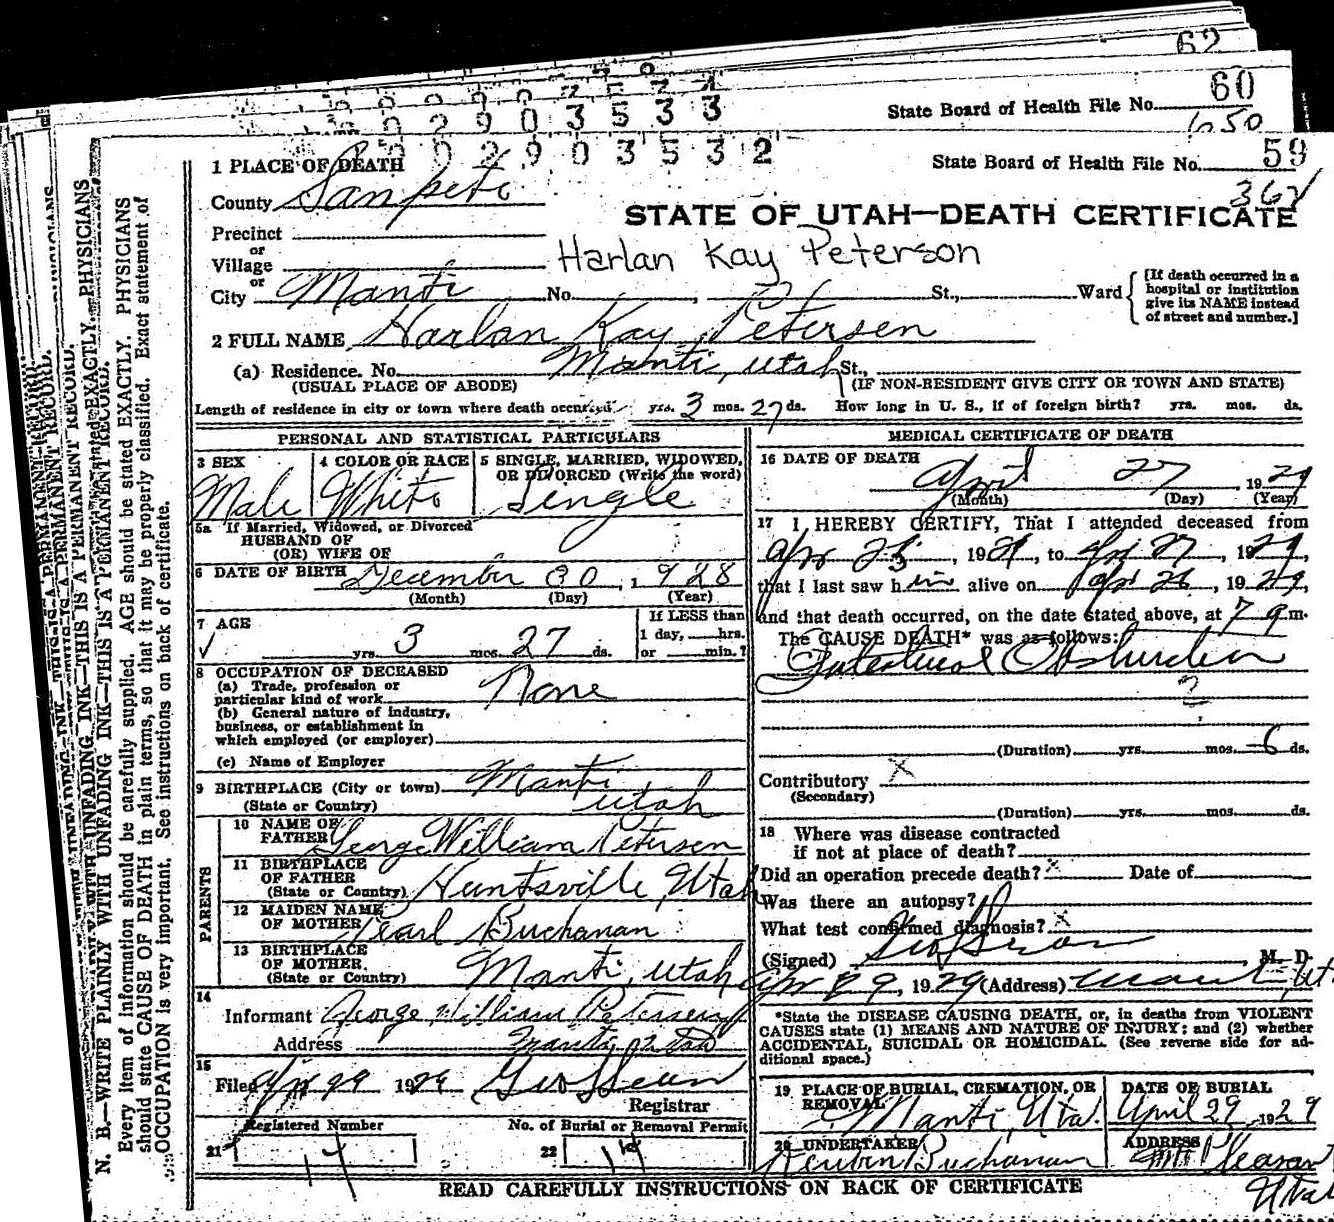 62
60
State Board of Health File No.
2 9 0 3 5 3 3
650
0 2 9 0 3 5 3 2
State Board of Health File No. 59
1 PLACE OF DEATH
County Sanpete
STATE OF UTAH—DEATH CERTIFICATE
Precinct
or
Village
Harlan Kay Peterson
or
City Manti No. , St., Ward
[If death occurred in a
hospital or institution
give its NAME instead
of street and number.]
2 FULL NAME Harlan Kay Petersen
(a) Residence. No. Manti, Utah St.,
(USUAL PLACE OF ABODE) (IF NON-RESIDENT GIVE CITY OR TOWN AND STATE)
Length of residence in city or town where death occurred yrs. 3 mos. 27 ds. How long in U. S., if of foreign birth? yrs. mos. ds.
PERSONAL AND STATISTICAL PARTICULARS
3 SEX
Male
4 COLOR OR RACE
White
5 SINGLE, MARRIED, WIDOWED,
OR DIVORCED (Write the word)
Single
5a If Married, Widowed, or Divorced
HUSBAND OF
(OR) WIFE OF
6 DATE OF BIRTH December 30, 1928
(Month) (Day) (Year)
7 AGE
yrs. 3 mos. 27 ds.
If LESS than
1 day, hrs.
or min.?
8 OCCUPATION OF DECEASED
(a) Trade, profession or
particular kind of work None
(b) General nature of industry,
business, or establishment in
which employed (or employer)
(c) Name of Employer
9 BIRTHPLACE (City or town) Manti
(State or Country) Utah
PARENTS
10 NAME OF
FATHER George William Petersen
11 BIRTHPLACE
OF FATHER
(State or Country) Huntsville, Utah
12 MAIDEN NAME
OF MOTHER Pearl Buchanan
13 BIRTHPLACE
OF MOTHER
(State or Country) Manti, Utah
14
Informant George William Petersen
Address Manti Utah
15
Filed Apr 29 1929
Registrar
Registered Number
21 14
No. of Burial or Removal Permit
22 14
MEDICAL CERTIFICATE OF DEATH
16 DATE OF DEATH
April 27, 1929
(Month) (Day) (Year)
17 I HEREBY CERTIFY, That I attended deceased from
Apr 25, 1929, to Apr 27, 1929,
that I last saw him alive on Apr 26, 1929,
and that death occurred, on the date stated above, at 7 a m.
The CAUSE DEATH* was as follows:
Intestinal Obstruction
?
(Duration) yrs. mos. 6 ds.
Contributory X
(Secondary)
(Duration) yrs. mos. ds.
18 Where was disease contracted
if not at place of death?
Did an operation precede death? x Date of
Was there an autopsy?
What test confirmed diagnosis? x
(Signed) , M. D.
Apr 29, 1929 (Address) Manti, Ut.
*State the DISEASE CAUSING DEATH, or, in deaths from VIOLENT
CAUSES state (1) MEANS AND NATURE OF INJURY; and (2) whether
ACCIDENTAL, SUICIDAL OR HOMICIDAL. (See reverse side for ad-
ditional space.)
19 PLACE OF BURIAL, CREMATION, OR
REMOVAL
Manti, Uta.
DATE OF BURIAL
April 29, 1929
20 UNDERTAKER
Reuben Buchanan
ADDRESS
Mt Pleasant
Utah
READ CAREFULLY INSTRUCTIONS ON BACK OF CERTIFICATE
N. B.—WRITE PLAINLY WITH UNFADING INK—THIS IS A PERMANENT RECORD.
Every item of information should be carefully supplied. AGE should be stated EXACTLY. PHYSICIANS
should state CAUSE OF DEATH in plain terms, so that it may be properly classified. Exact statement of
OCCUPATION is very important. See instructions on back of certificate.